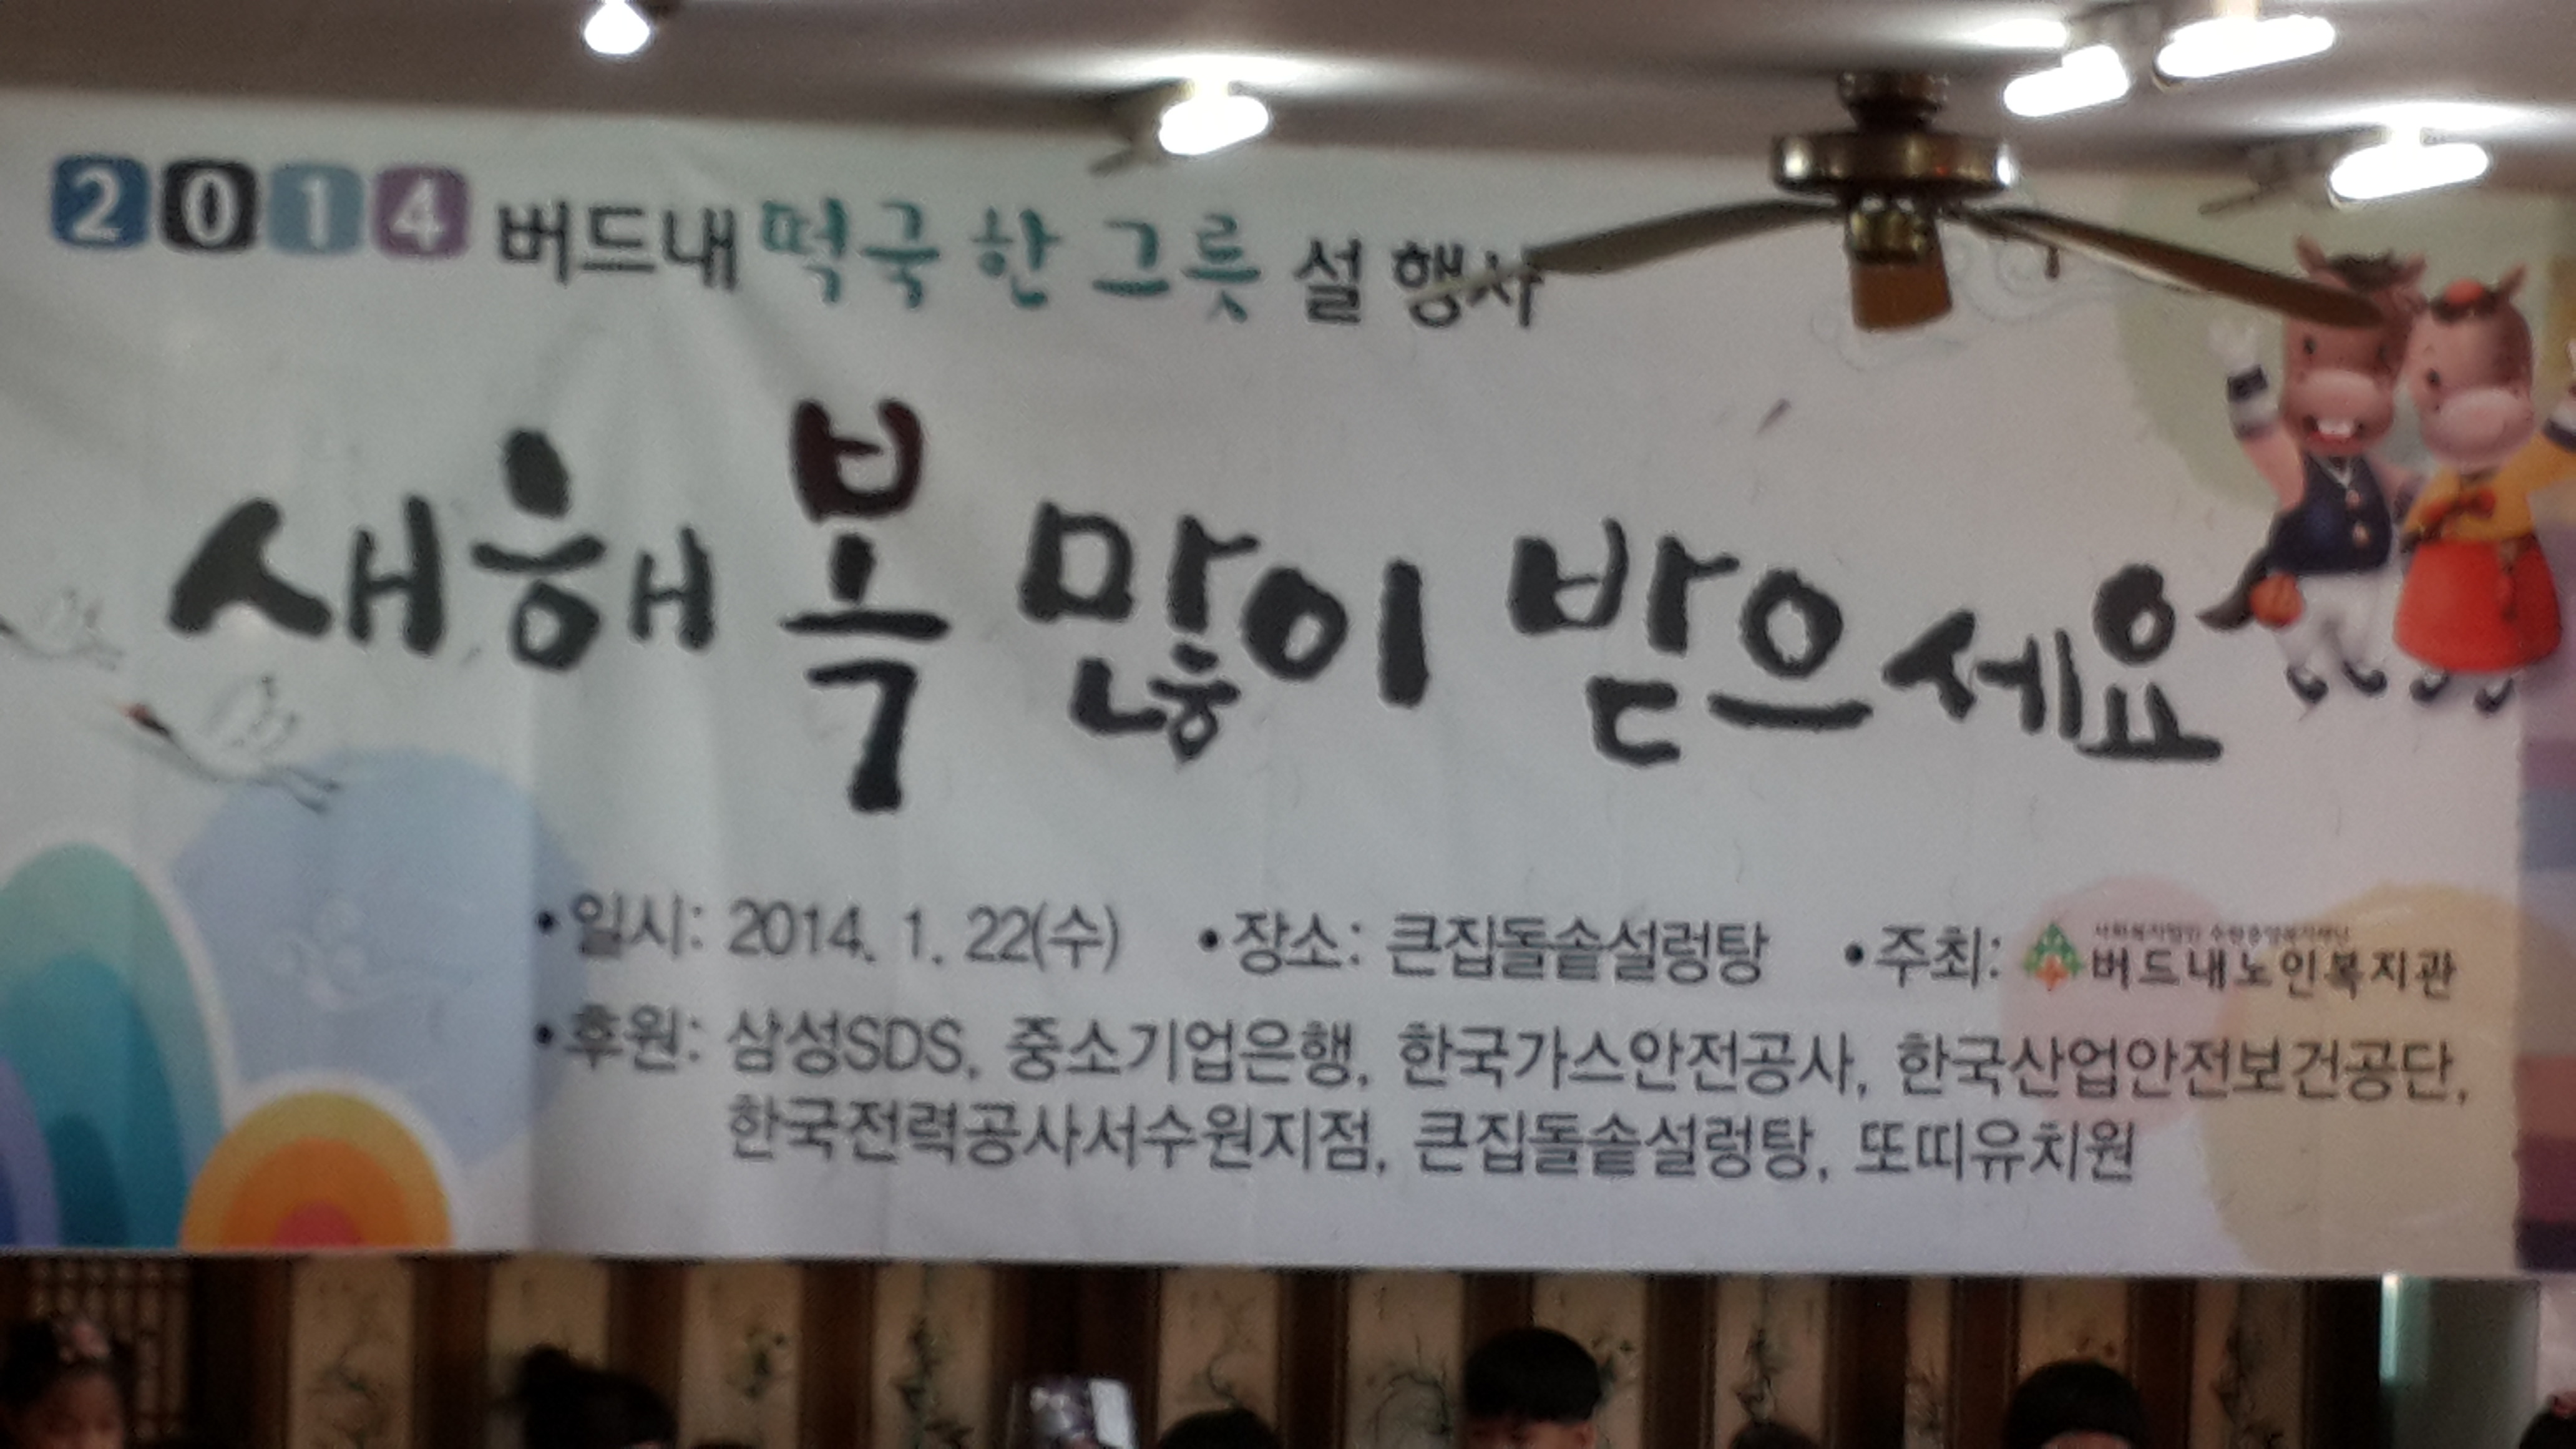 2014 버드내 떡국 한 그릇 설 행사
새해 복 많이 받으세요
•일시: 2014. 1. 22(수) •장소: 큰집돌솥설렁탕 •주최: 버드내노인복지관
•후원: 삼성SDS, 중소기업은행, 한국가스안전공사, 한국산업안전보건공단,
한국전력공사서수원지점, 큰집돌솥설렁탕, 또띠유치원